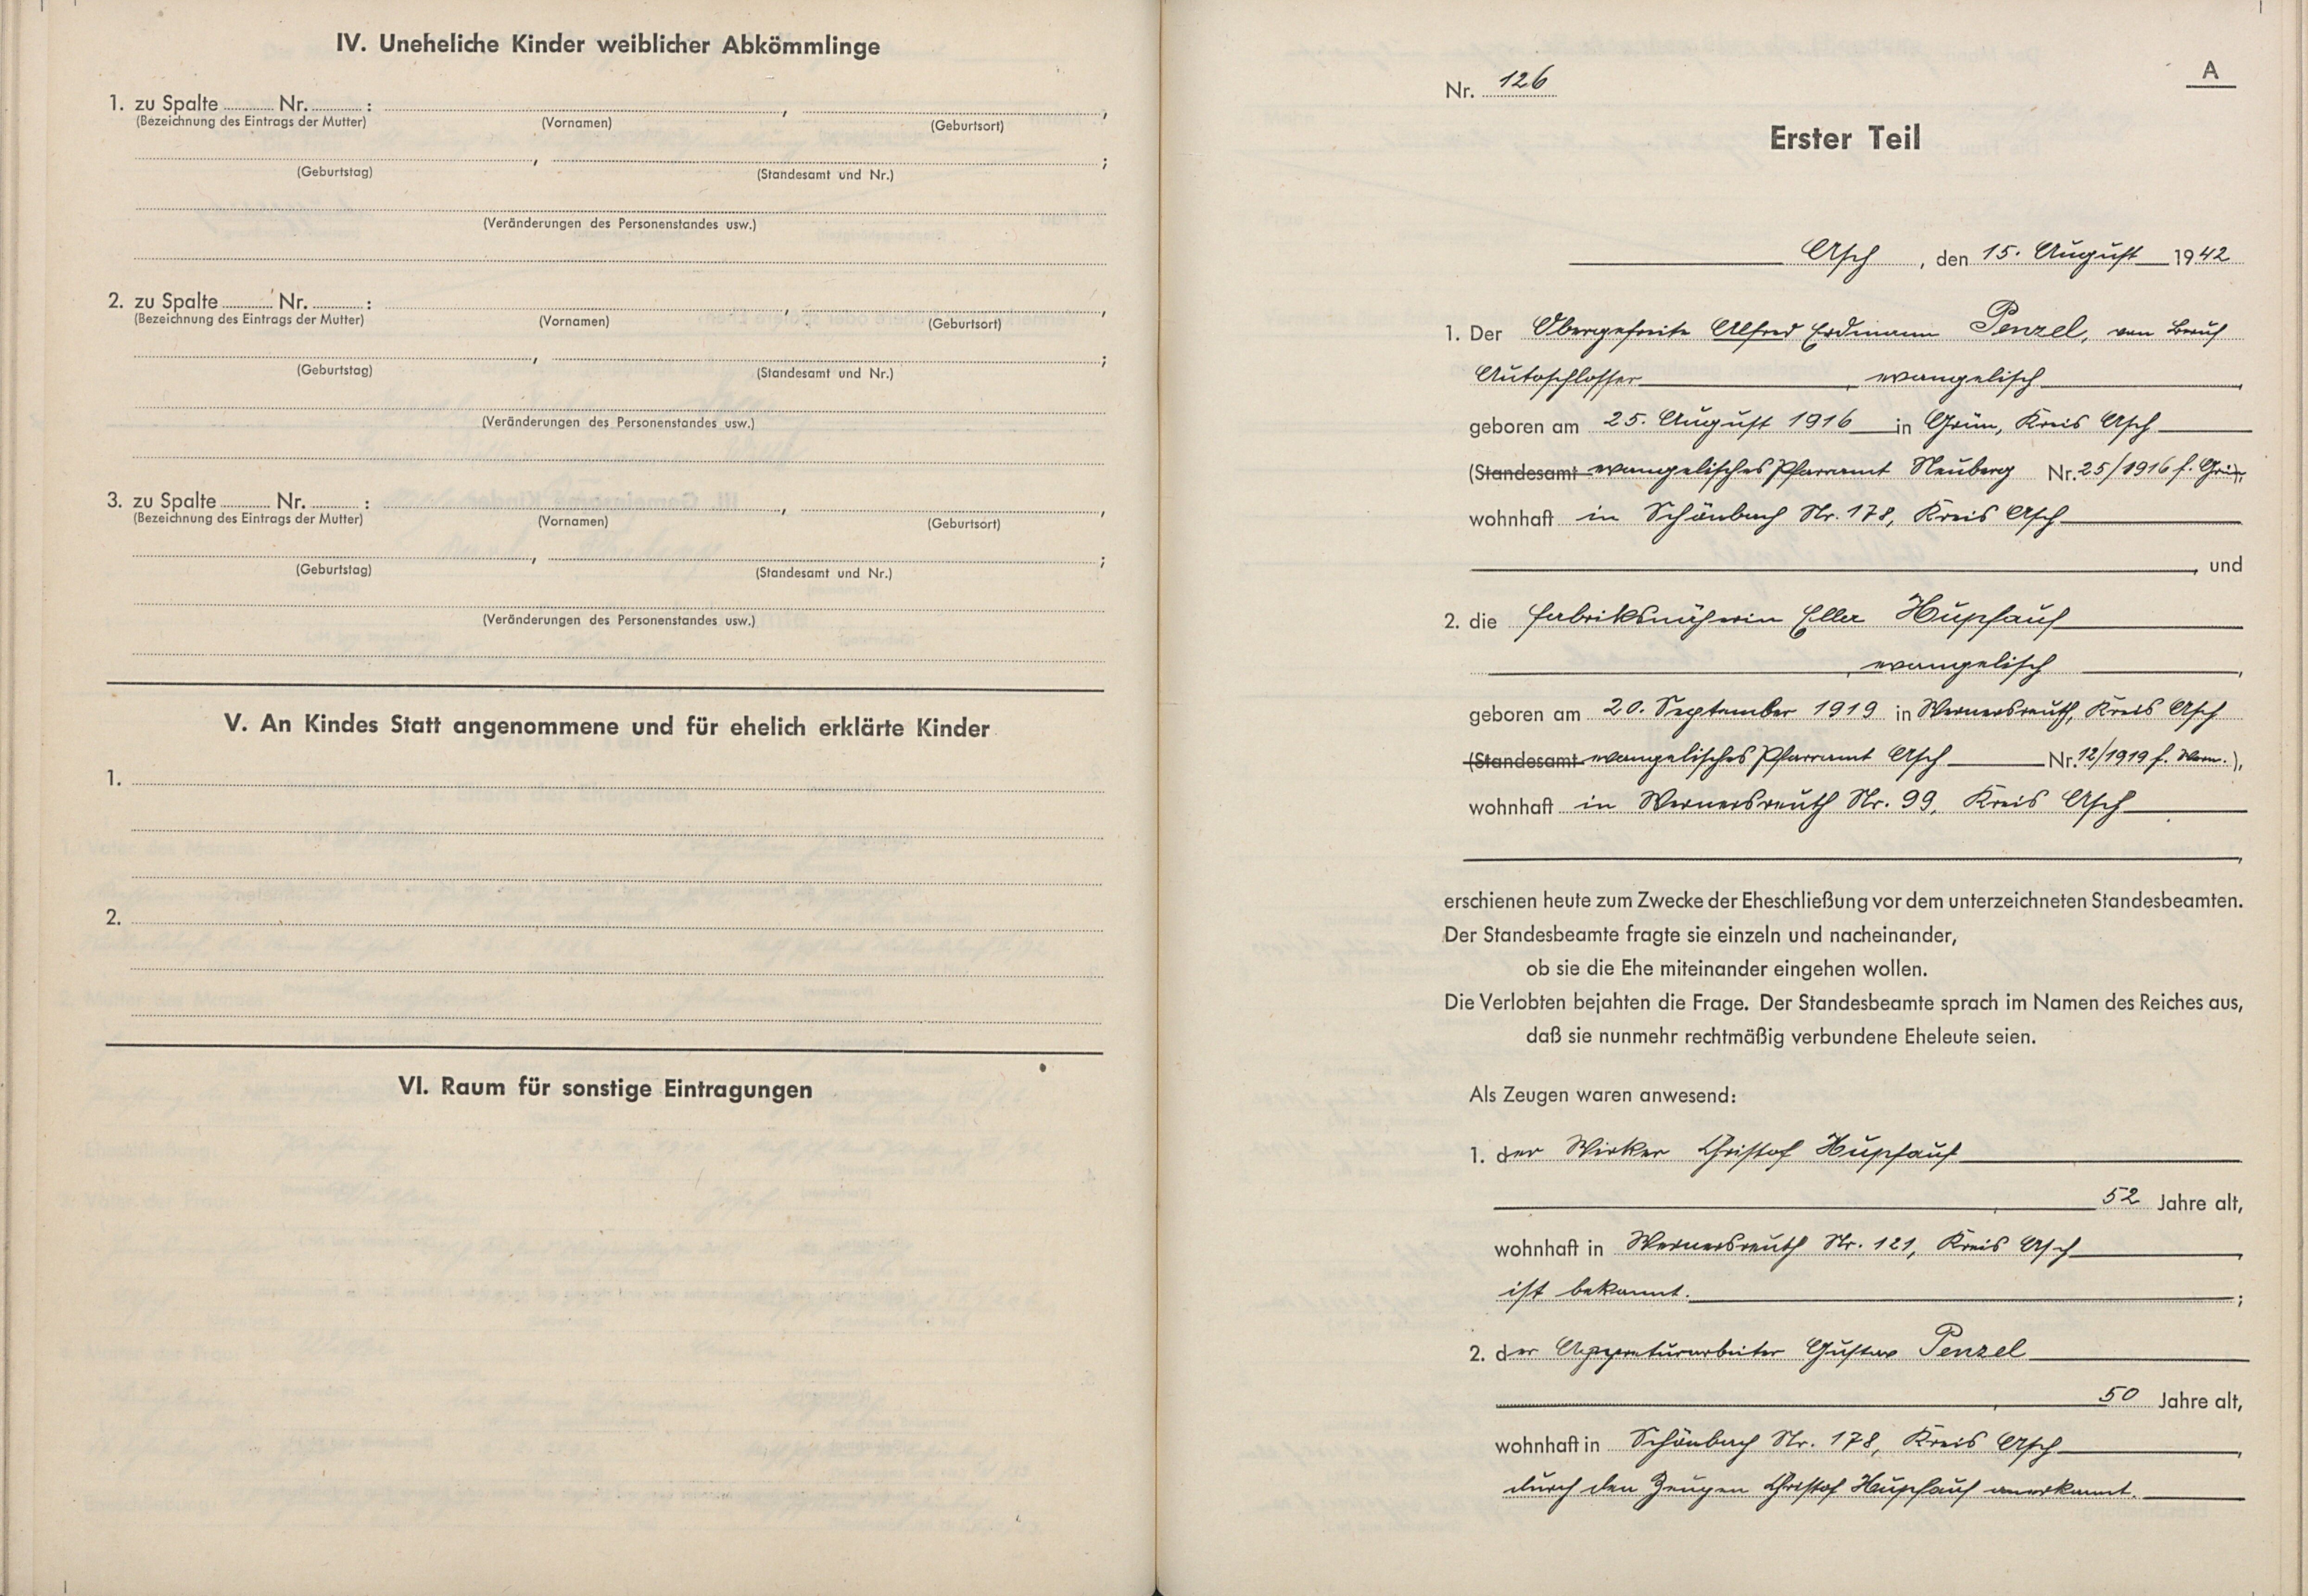 IV. Uneheliche Kinder weiblicher Abkömmlinge
1. zu Spalte ............ Nr. ............ : ............ , ............ ,
(Bezeichnung des Eintrags der Mutter) (Vornamen) (Geburtsort)
............ , ............ ;
(Geburtstag) (Standesamt und Nr.)
(Veränderungen des Personenstandes usw.)
2. zu Spalte ............ Nr. ............ : ............ , ............ ,
(Bezeichnung des Eintrags der Mutter) (Vornamen) (Geburtsort)
............ , ............ ;
(Geburtstag) (Standesamt und Nr.)
(Veränderungen des Personenstandes usw.)
3. zu Spalte ............ Nr. ............ : ............ , ............ ,
(Bezeichnung des Eintrags der Mutter) (Vornamen) (Geburtsort)
............ , ............ ;
(Geburtstag) (Standesamt und Nr.)
(Veränderungen des Personenstandes usw.)
V. An Kindes Statt angenommene und für ehelich erklärte Kinder
1.
2.
VI. Raum für sonstige Eintragungen
A
Nr. 126
Erster Teil
Asch, den 15. August 1942
1. Der Obergefreite Alfred Erdmann Penzel, von Beruf
Autoschlosser, evangelisch,
geboren am 25. August 1916 in Grün, Kreis Asch
(Standesamt evangelisches Pfarramt Neuberg Nr. 25/1916 f. Grün),
wohnhaft in Schönbach Nr. 178, Kreis Asch
, und
2. die Fabriksnäherin Ella Hupfauf
, evangelisch,
geboren am 20. September 1919 in Wernersreuth, Kreis Asch
(Standesamt evangelisches Pfarramt Asch Nr. 12/1919 f. Wern.),
wohnhaft in Wernersreuth Nr. 99, Kreis Asch
,
erschienen heute zum Zwecke der Eheschließung vor dem unterzeichneten Standesbeamten.
Der Standesbeamte fragte sie einzeln und nacheinander,
ob sie die Ehe miteinander eingehen wollen.
Die Verlobten bejahten die Frage. Der Standesbeamte sprach im Namen des Reiches aus,
daß sie nunmehr rechtmäßig verbundene Eheleute seien.
Als Zeugen waren anwesend:
1. der Wirker Christof Hupfauf
, 52 Jahre alt,
wohnhaft in Wernersreuth Nr. 121, Kreis Asch,
ist bekannt. ;
2. der Appreturarbeiter Gustav Penzel
, 50 Jahre alt,
wohnhaft in Schönbach Nr. 178, Kreis Asch,
durch den Zeugen Christof Hupfauf anerkannt.